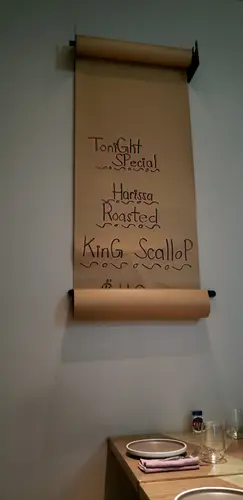 ToniGht
SPecial
Harissa
Roasted
KinG ScalloP